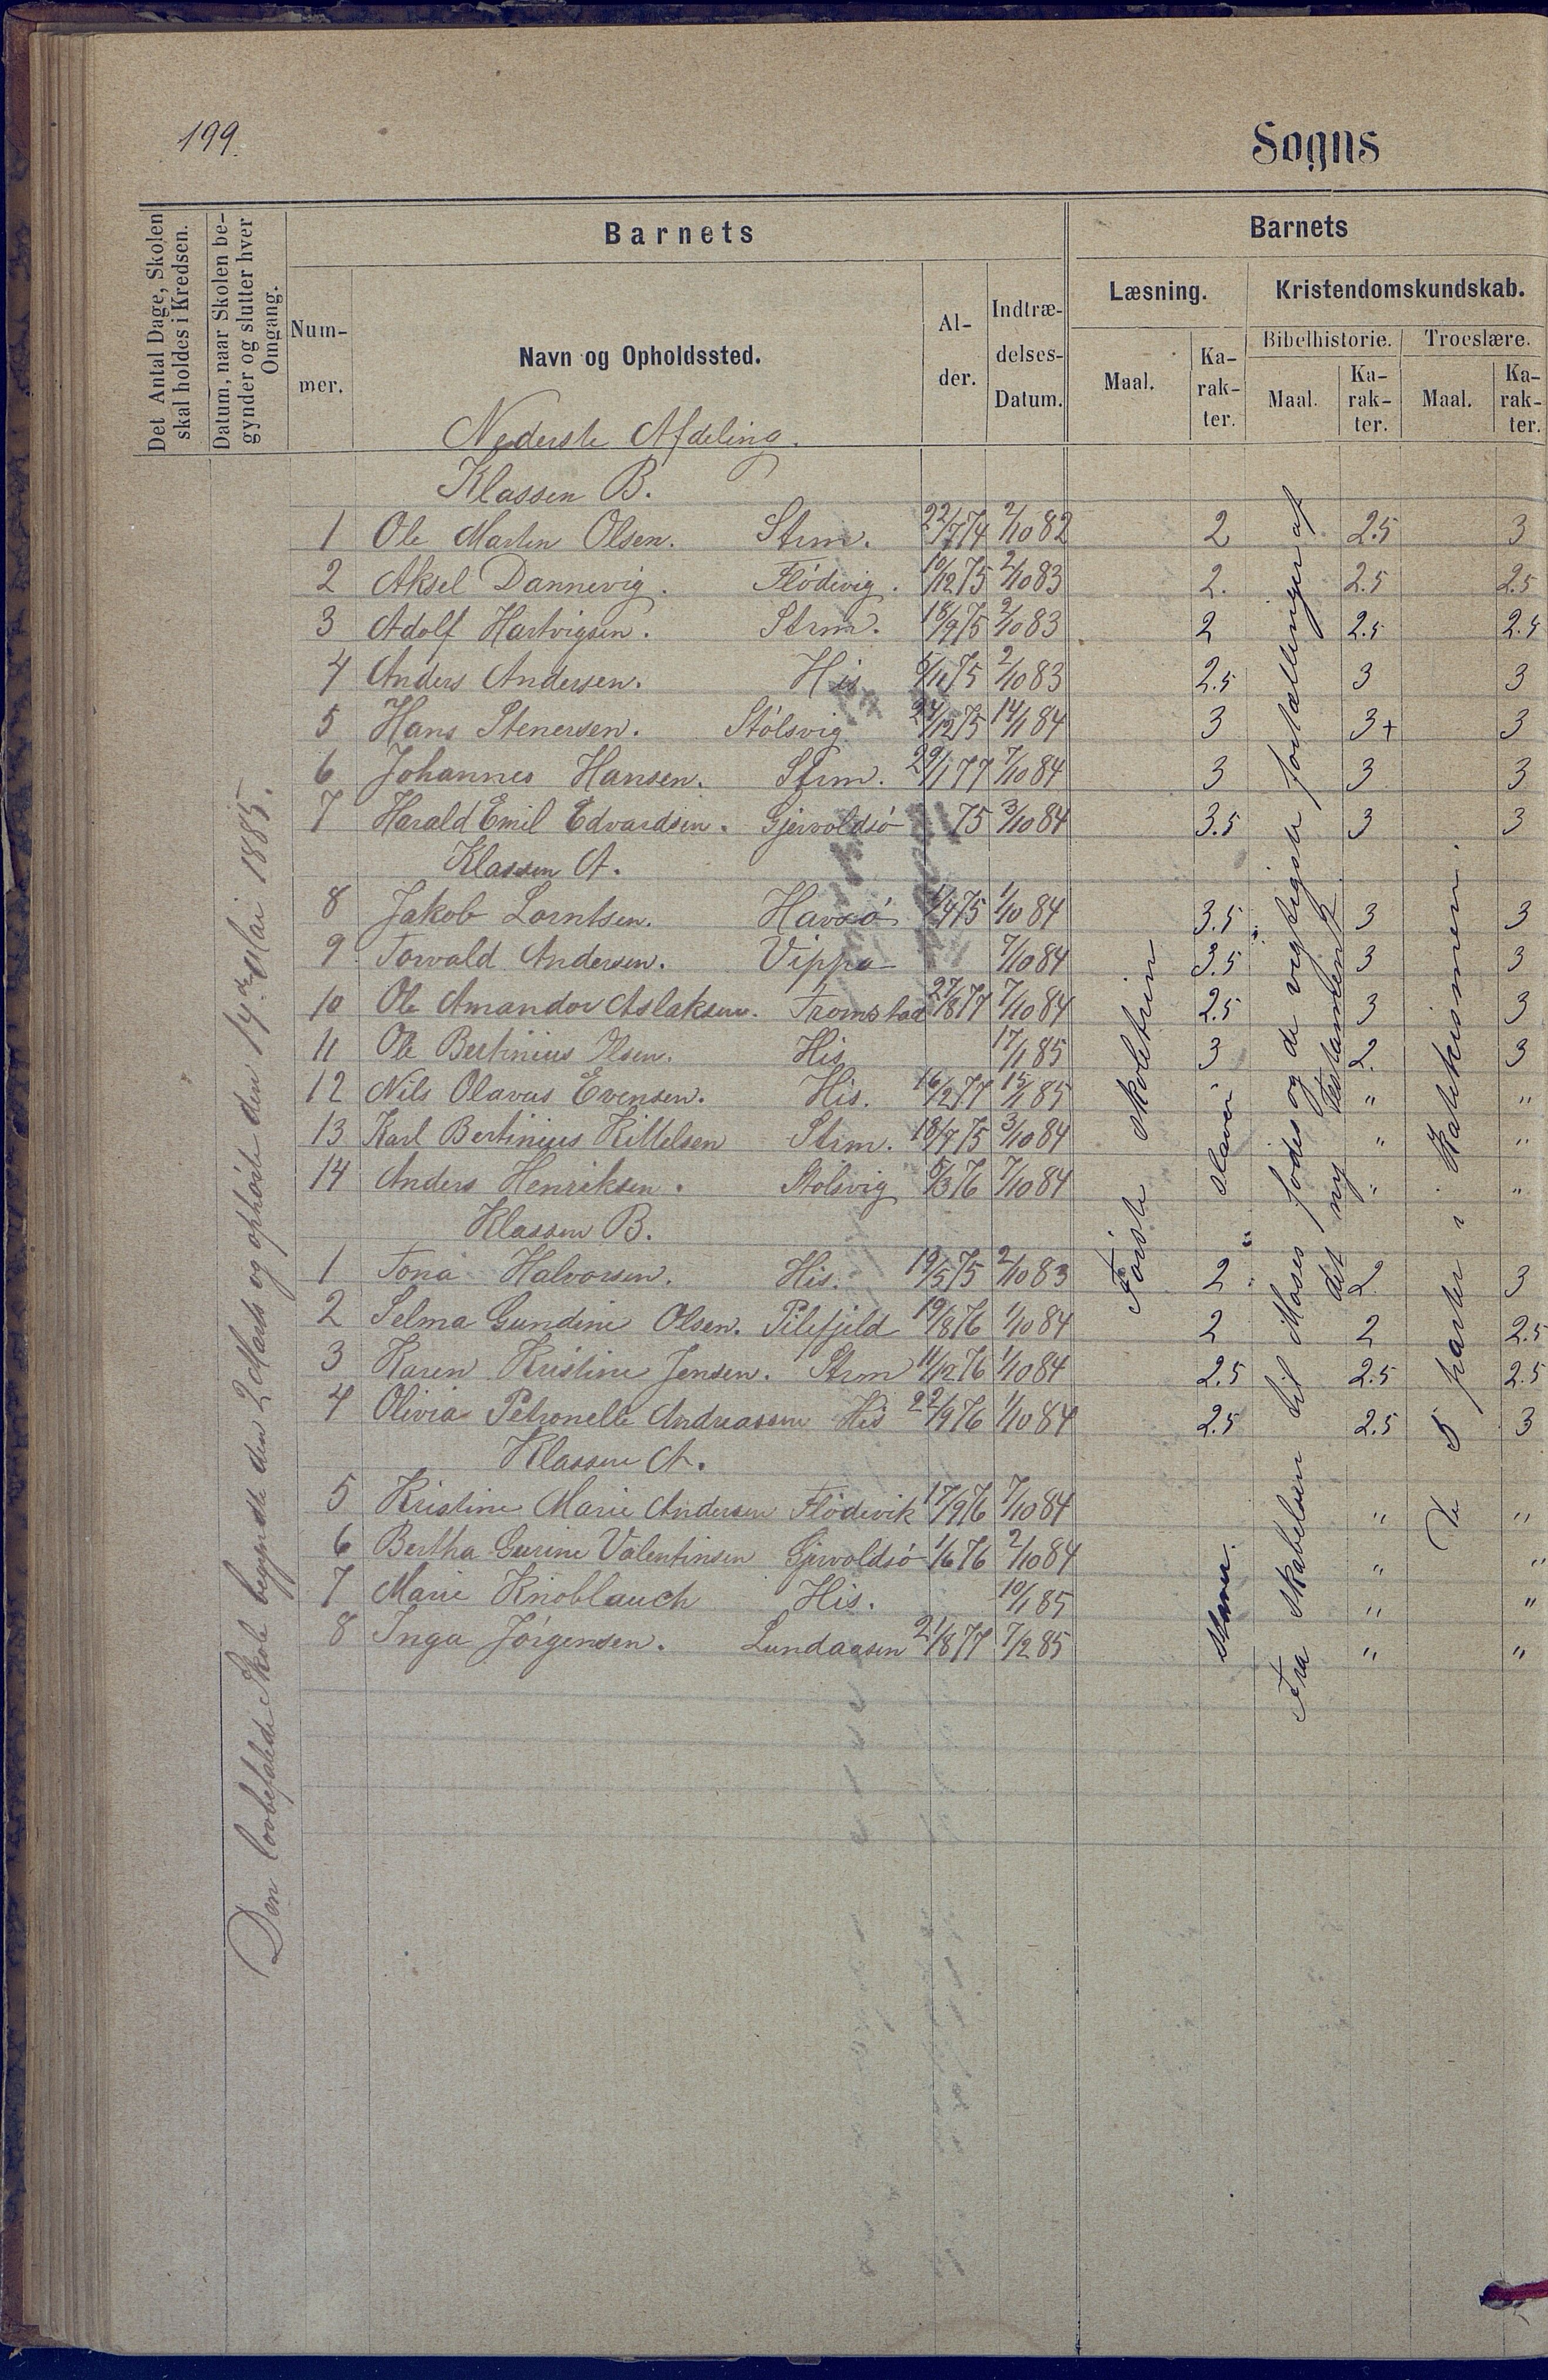 199.
Sogns
Det Antal Dage, Skolen
skal holdes i Kredsen.
Datum, naar Skolen be-
gynder og slutter hver
Omgang.
Barnets
Num-
mer.
Navn og Opholdssted.
Al-
der.
Indtræ-
delses-
Datum.
Barnets
Læsning.
Kristendomskundskab.
Maal.
Ka-
rak-
ter.
Bibelhistorie.
Troeslære.
Maal.
Ka-
rak-
ter.
Maal.
Ka-
rak-
ter.
Den lovbefalede Skole begyndte den 2 Marts og ophørte den 14de Mai 1885.
Nederste Afdeling.
Klassen B.
1 Ole Martin Olsen. Strm. 22/7 74 2/10 82 2 2.5 3
2 Aksel Dannevig. Flödevig. 10/12 75 2/10 83 2. 2.5 2.5
3 Adolf Hartvigsen. Strm. 18/9 75 2/10 83 2 2.5 2.5
4 Anders Andersen. His 5/11 75 2/10 83 2.5 3 3
5 Hans Stenersen. Stólsvig 24/12 75 14/1 84 3 3+ 3
6 Johannes Hansen. Strm. 29/1 77 7/10 84 3 3 3
7 Harald Emil Edvardsen. Gjervoldsó 75 3/10 84 3.5 3 3
Klassen A.
8 Jakob Lorntsen. Havsó 1/4 75 1/10 84 3.5 3 3
9 Torvald Andersen. Vippa 7/10 84 3.5 3 3
10 Ole Amandor Aslaksen. Fromstad 27/8 77 7/10 84 2.5 3 3
11 Ole Bertinius Olsen. His 17/1 85 3 2. 3
12 Nils Olavus Evensen. His. 16/2 77 15/1 85 " "
13 Karl Bertinius Kittelsen Strm. 18/7 75 3/10 84 " "
14 Anders Henriksen. Stolsvig 5/3 76 7/10 84 " "
Klassen B.
1 Tona Halvorsen. His. 19/5 75 2/10 83 2 2. 3
2 Selma Gundine Olsen. Pilefjeld 19/8 76 1/10 84 2 2 2.5
3 Karen Kristine Jensen. Strm 11/12 76 1/10 84 2.5 2.5 2.5
4 Olivia Petronelle Andreassen His 22/9 76 1/10 84 2.5 2.5 3
Klassen A.
5 Kristine Marie Andersen Flödevik 17/9 76 7/10 84 " "
6 Bertha Gurine Valentinsen Gjervoldsó 1/6 76 2/10 84 " "
7 Marie Knoblauch His. 10/1 85 " "
8 Inga Jórgensen. Lundaasen 21/8 77 7/2 85 " "
Förste skoletrin
Fra skabelsen til Moses fódes og de vigtigste fortællinger af
det ny Testamente
De 5 parter i Katekismen.